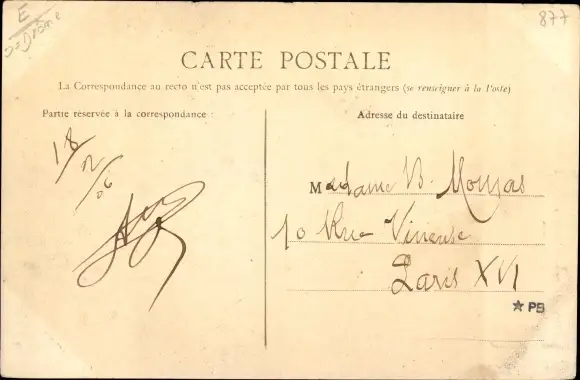 E
26 Drôme
877
CARTE POSTALE
La Correspondance au recto n'est pas acceptée par tous les pays étrangers (se renseigner à la Poste)
Partie réservée à la correspondance :
Adresse du destinataire
18/2/06
Madame B. Mouyas
10 Rue Vineuse
Paris XVI
★ PB